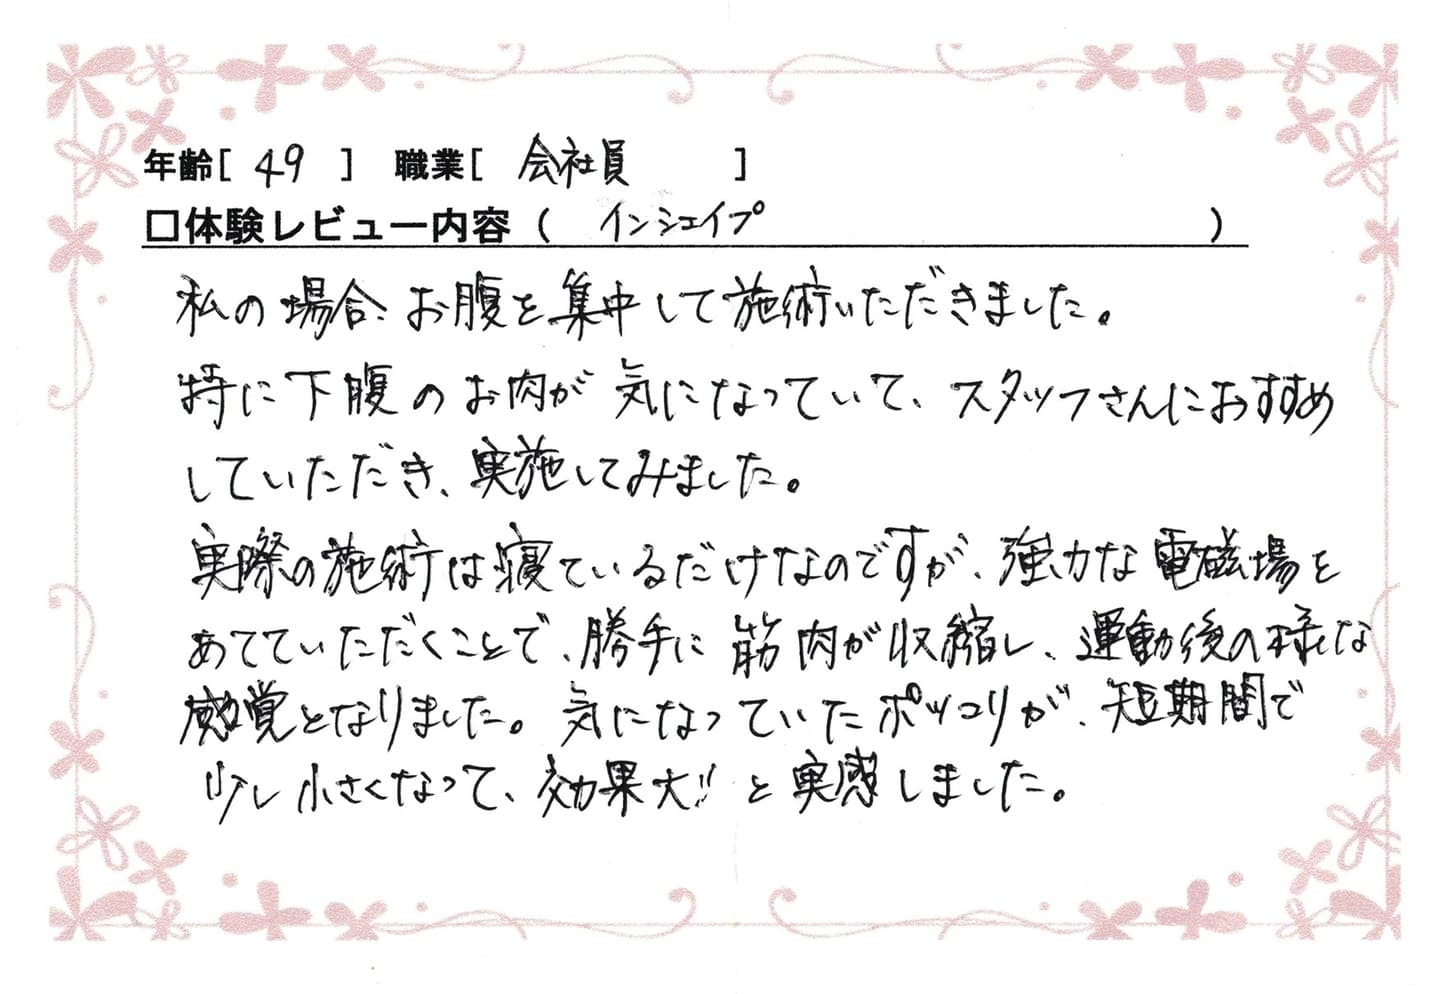 年齢[ 49 ] 職業[ 会社員 ]
□体験レビュー内容 ( インシェイプ )
私の場合、お腹を集中して施術いただきました。
特に下腹のお肉が気になっていて、スタッフさんにおすすめ
していただき、実施してみました。
実際の施術は寝ているだけなのですが、強力な電磁場を
あてていただくことで、勝手に筋肉が収縮し、運動後の様な
感覚となりました。気になっていたポッコリが、短期間で
少し小さくなって、効果大!!と実感しました。